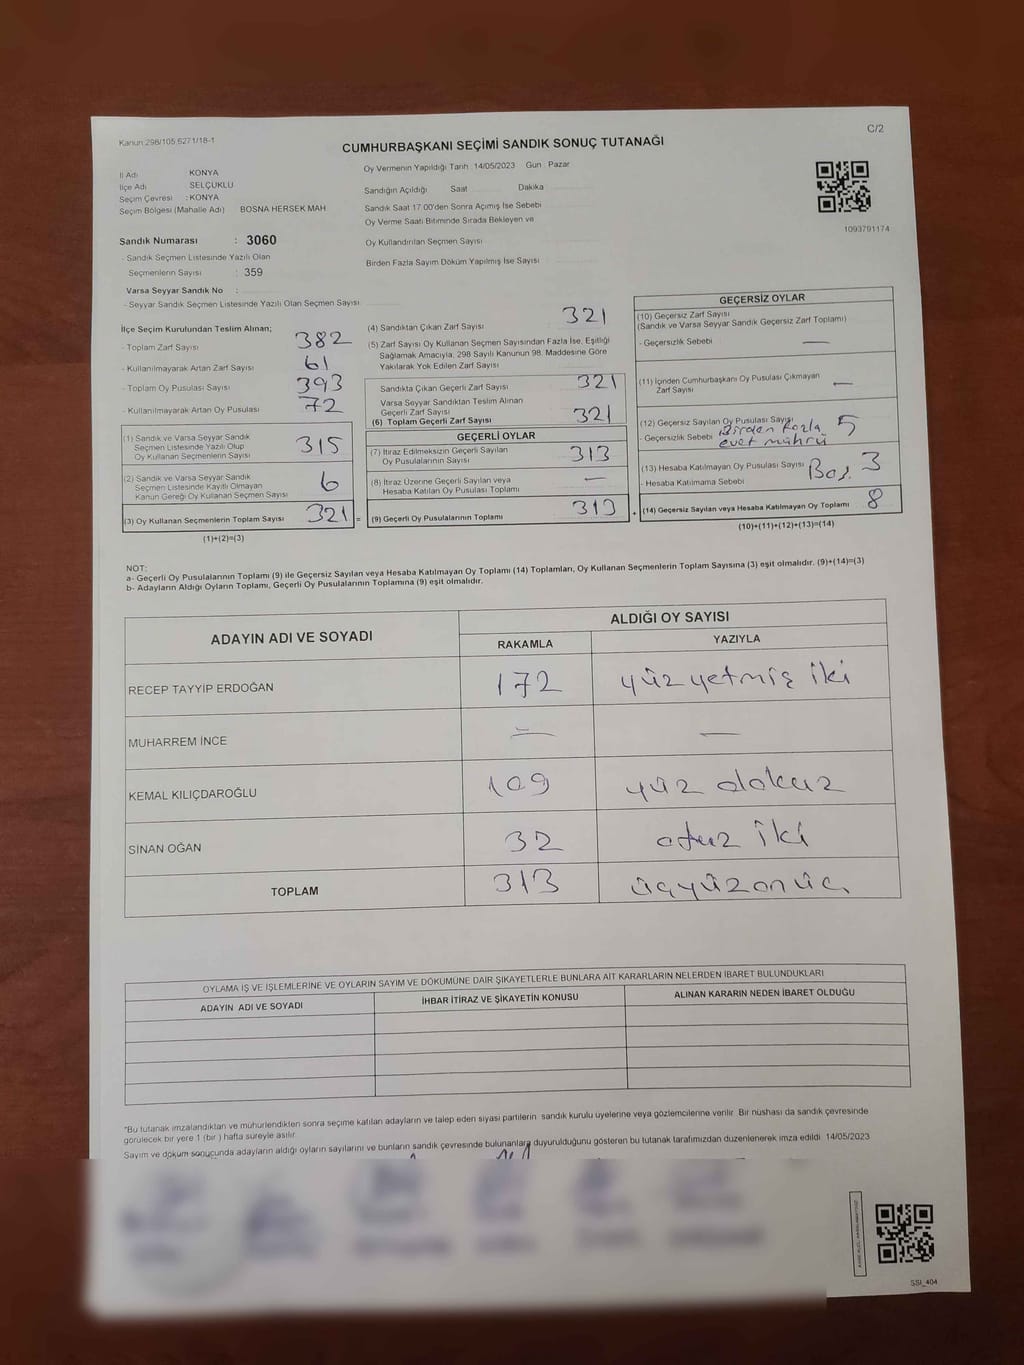 Kanun:298/105,6271/18-1
C/2
CUMHURBAŞKANI SEÇİMİ SANDIK SONUÇ TUTANAĞI
İl Adı KONYA
İlçe Adı SELÇUKLU
Seçim Çevresi : KONYA
Seçim Bölgesi (Mahalle Adı) BOSNA HERSEK MAH
Sandık Numarası : 3060
- Sandık Seçmen Listesinde Yazılı Olan
Seçmenlerin Sayısı : 359
Varsa Seyyar Sandık No :
- Seyyar Sandık Seçmen Listesinde Yazılı Olan Seçmen Sayısı
Oy Vermenin Yapıldığı Tarih 14/05/2023 Gün Pazar
Sandığın Açıldığı Saat Dakika
Sandık Saat 17.00'den Sonra Açımış İse Sebebi
Oy Verme Saati Bitiminde Sırada Bekleyen ve
Oy Kullandırılan Seçmen Sayısı
Birden Fazla Sayım Döküm Yapılmış İse Sayısı
1093791174
İlçe Seçim Kurulundan Teslim Alınan;
- Toplam Zarf Sayısı 382
- Kullanılmayarak Artan Zarf Sayısı 61
- Toplam Oy Pusulası Sayısı 393
- Kullanılmayarak Artan Oy Pusulası 72
(1) Sandık ve Varsa Seyyar Sandık
Seçmen Listesinde Yazılı Olup
Oy Kullanan Seçmenlerin Sayısı 315
(2) Sandık ve Varsa Seyyar Sandık
Seçmen Listesinde Kayıtlı Olmayan
Kanun Gereği Oy Kullanan Seçmen Sayısı 6
(3) Oy Kullanan Seçmenlerin Toplam Sayısı 321 =
(1)+(2)=(3)
(4) Sandıktan Çıkan Zarf Sayısı 321
(5) Zarf Sayısı Oy Kullanan Seçmen Sayısından Fazla İse, Eşitliği
Sağlamak Amacıyla, 298 Sayılı Kanunun 98. Maddesine Göre
Yakılarak Yok Edilen Zarf Sayısı
Sandıkta Çıkan Geçerli Zarf Sayısı 321
Varsa Seyyar Sandıktan Teslim Alınan
Geçerli Zarf Sayısı
(6) Toplam Geçerli Zarf Sayısı 321
GEÇERLİ OYLAR
(7) İtiraz Edilmeksizin Geçerli Sayılan
Oy Pusulalarının Sayısı 313
(8) İtiraz Üzerine Geçerli Sayılan veya
Hesaba Katılan Oy Pusulası Toplamı —
(9) Geçerli Oy Pusulalarının Toplamı 313 +
GEÇERSİZ OYLAR
(10) Geçersiz Zarf Sayısı
(Sandık ve Varsa Seyyar Sandık Geçersiz Zarf Toplamı)
- Geçersizlik Sebebi —
(11) İçinden Cumhurbaşkanı Oy Pusulası Çıkmayan
Zarf Sayısı —
(12) Geçersiz Sayılan Oy Pusulası Sayısı 5
- Geçersizlik Sebebi Birden fazla
evet mührü
(13) Hesaba Katılmayan Oy Pusulası Sayısı 3
- Hesaba Katılmama Sebebi Boş.
(14) Geçersiz Sayılan veya Hesaba Katılmayan Oy Toplamı 8
(10)+(11)+(12)+(13)=(14)
NOT:
a- Geçerli Oy Pusulalarının Toplamı (9) ile Geçersiz Sayılan veya Hesaba Katılmayan Oy Toplamı (14) Toplamları, Oy Kullanan Seçmenlerin Toplam Sayısına (3) eşit olmalıdır. (9)+(14)=(3)
b- Adayların Aldığı Oyların Toplamı, Geçerli Oy Pusulalarının Toplamına (9) eşit olmalıdır.
ADAYIN ADI VE SOYADI ALDIĞI OY SAYISI
RAKAMLA YAZIYLA
RECEP TAYYİP ERDOĞAN 172 yüz yetmiş iki
MUHARREM İNCE — —
KEMAL KILIÇDAROĞLU 109 yüz dokuz
SİNAN OĞAN 32 otuz iki
TOPLAM 313 üçyüzonüç
OYLAMA İŞ VE İŞLEMLERİNE VE OYLARIN SAYIM VE DÖKÜMÜNE DAİR ŞİKAYETLERLE BUNLARA AİT KARARLARIN NELERDEN İBARET BULUNDUKLARI
ADAYIN ADI VE SOYADI İHBAR İTİRAZ VE ŞİKAYETİN KONUSU ALINAN KARARIN NEDEN İBARET OLDUĞU
*Bu tutanak imzalandıktan ve mühürlendikten sonra seçime katılan adayların ve talep eden siyasi partilerin sandık kurulu üyelerine veya gözlemcilerine verilir. Bir nüshası da sandık çevresinde
görülecek bir yere 1 (bir ) hafta süreyle asılır.
Sayım ve döküm sonucunda adayların aldığı oyların sayılarını ve bunların sandık çevresinde bulunanlara duyurulduğunu gösteren bu tutanak tarafımızdan düzenlenerek imza edildi. 14/05/2023
SSI_404